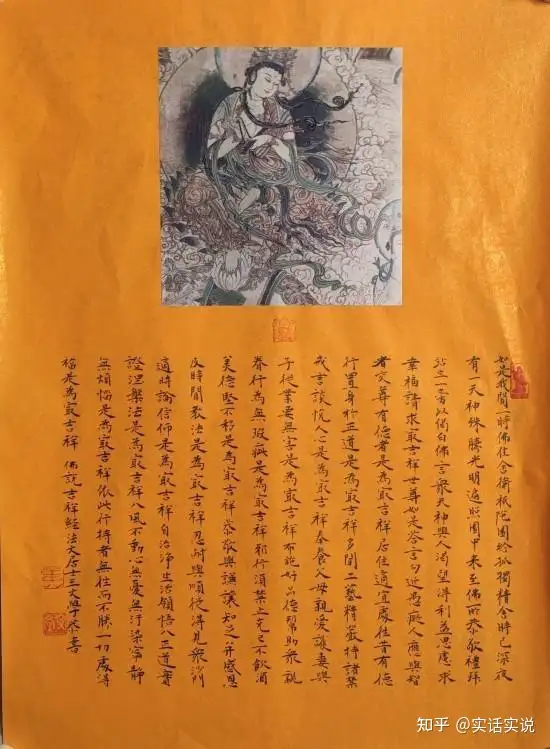 如是我聞一時佛住舍衛祇陀園給孤獨精舍時已深夜
有一天神殊勝光明遍照園中来至佛所恭敬禮拜
站立一方以偈白佛言眾天神與人渴望得利益思慮求
幸福請求最吉祥世尊如是答言勿近愚癡人應與智
者交尊有德者是為最吉祥居住適宜處往昔有德
行置身於正道是為最吉祥多聞工藝精嚴持諸禁
戒言談悅人心是為最吉祥奉養父母親愛護妻與
子從業要無害是為最吉祥布施好品德幫助眾親
眷行為無瑕疵是為最吉祥邪行須禁止克己不飲酒
美德堅不移是為最吉祥恭敬與謙讓知足并感恩
及時聞教法是為最吉祥忍耐與順從得見眾沙門
適時論信仰是為最吉祥自治淨生活領悟八正道實
證涅槃法是為最吉祥八風不動心無憂無汙染寧靜
無煩惱是為最吉祥依此行持者無往而不勝一切處得
福是為最吉祥 佛說吉祥經 恭書
知乎 @实话实说